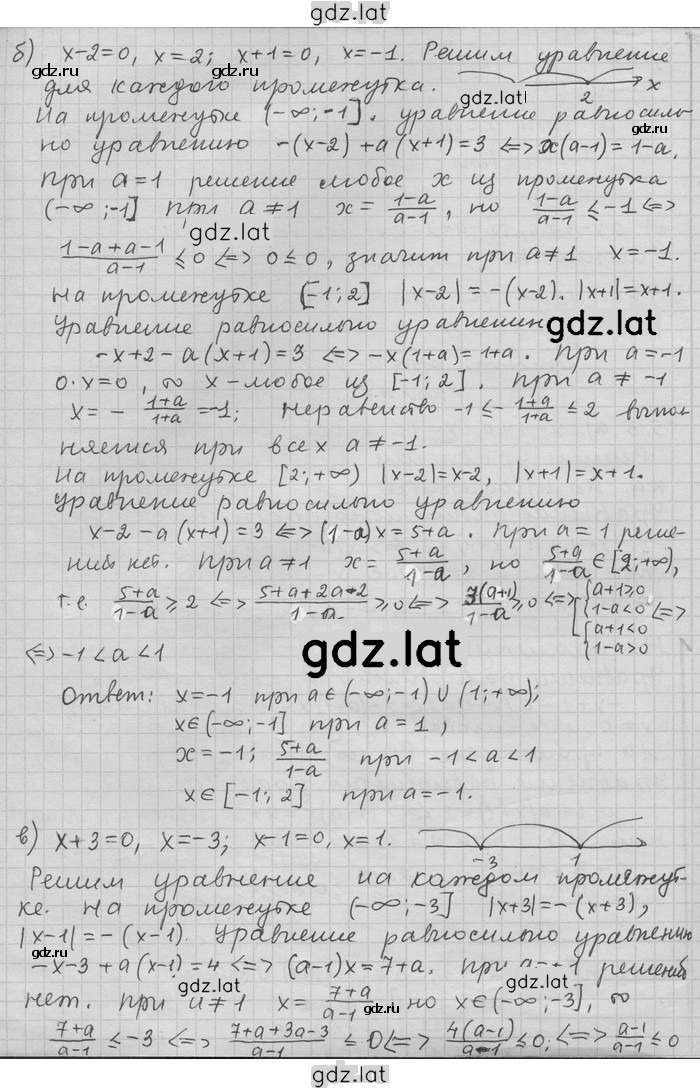 gdz.lat
б) x-2=0, x=2; x+1=0, x=-1. Решим уравнение
gdz.lat
gdz.lat
для каждого промежутка.
gdz.lat
2
x
На промежутке (-∞;-1]. уравнение равносиль
gdz.lat
но уравнению -(x-2)+a(x+1)=3 <=> x(a-1)=1-a.
При a=1 решение любое x из промежутка
(-∞;-1] при a≠1 x= (1-a)/(a-1), но (1-a)/(a-1) ≤-1 <=>
gdz.lat
(1-a+a-1)/(a-1) ≤0 <=> 0≤0, значит при a≠1 x=-1.
На промежутке [-1;2] |x-2|=-(x-2). |x+1|=x+1.
Уравнение равносильно уравнению
gdz.lat
-x+2-a(x+1)=3 <=> -x(1+a)=1+a. При a=-1
0·x=0, ∞ x-любое из [-1;2]. При a≠-1
x=-(1+a)/(1+a)=-1; неравенство -1≤-(1+a)/(1+a)≤2 выпол
няется при всех a≠-1.
На промежутке [2;+∞) |x-2|=x-2, |x+1|=x+1.
Уравнение равносильно уравнению
x-2-a(x+1)=3 <=> (1-a)x=5+a. При a=1 реше-
ний нет. При a≠1 x=(5+a)/(1-a), но (5+a)/(1-a)∈[2;+∞),
т.е. (5+a)/(1-a)≥2 <=> (5+a+2a-2)/(1-a)≥0 <=> 3(a+1)/(1-a)≥0 <=> [{a+1≥0 1-a<0 {a+1<0 1-a>0 <=>
<=> -1<a<1
gdz.lat
Ответ: x=-1 при a∈(-∞;-1)∪(1;+∞);
x∈(-∞;-1] при a=1,
x=-1; (5+a)/(1-a) при -1<a<1
x∈[-1;2] при a=-1.
в) x+3=0, x=-3; x-1=0, x=1.
-3 1
Решим уравнение на каждом промежут-
ке. На промежутке (-∞;-3] |x+3|=-(x+3),
|x-1|=-(x-1). Уравнение равносильно уравнению
-x-3+a(x-1)=4 <=> (a-1)x=7+a. при a=1 решений
gdz.lat
gdz.lat
нет. При a≠1 x=(7+a)/(a-1) но x∈(-∞;-3], ∞
(7+a)/(a-1)≤-3 <=> (7+a+3a-3)/(a-1)≤0 <=> 4(a-1)/(a-1)≤0; <=> (a-1)/(a-1)≤0
gdz.lat